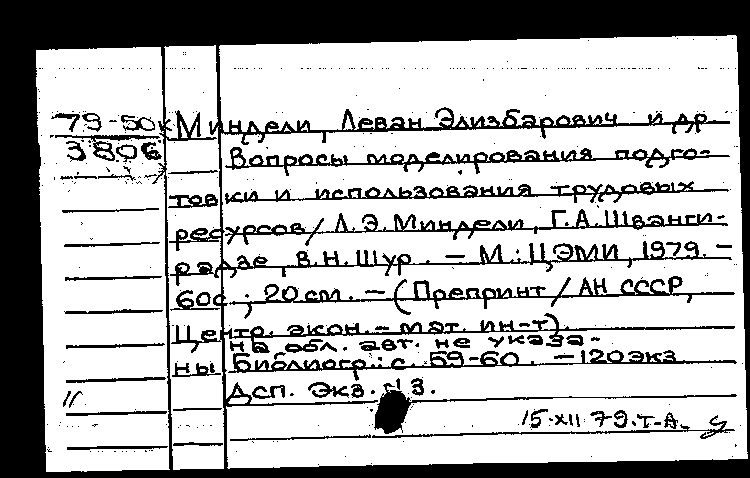 79-50к Миндели, Леван Элизбарович и др.
3806
Вопросы моделирования подго-
товки и использования трудовых
ресурсов / Л.Э.Миндели, Г.А.Шванги-
радзе, В.Н.Шур. — М.: ЦЭМИ, 1979. —
60с.; 20 см. — (Препринт / АН СССР,
Центр. экон.-мат. ин-т).
На обл. авт. не указа-
ны Библиогр.: с. 59-60. — 120 экз
Дсп. Экз. N 3.
15.XII.79. Т-А.